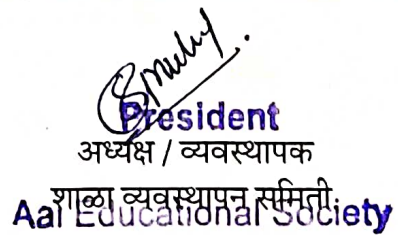 President
अध्यक्ष / व्यवस्थापक
शाळा व्यवस्थापन समिती
Aai Educational Society